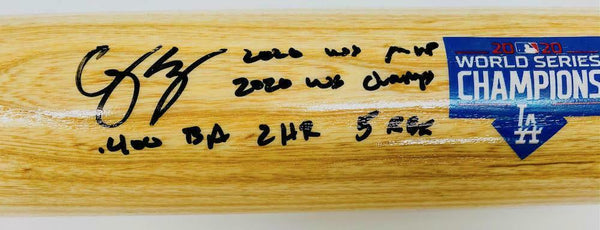 2020 WS MVP
2020 WS Champ
.400 BA 2 HR 5 RBI
2020
WORLD SERIES
CHAMPIONS
LA